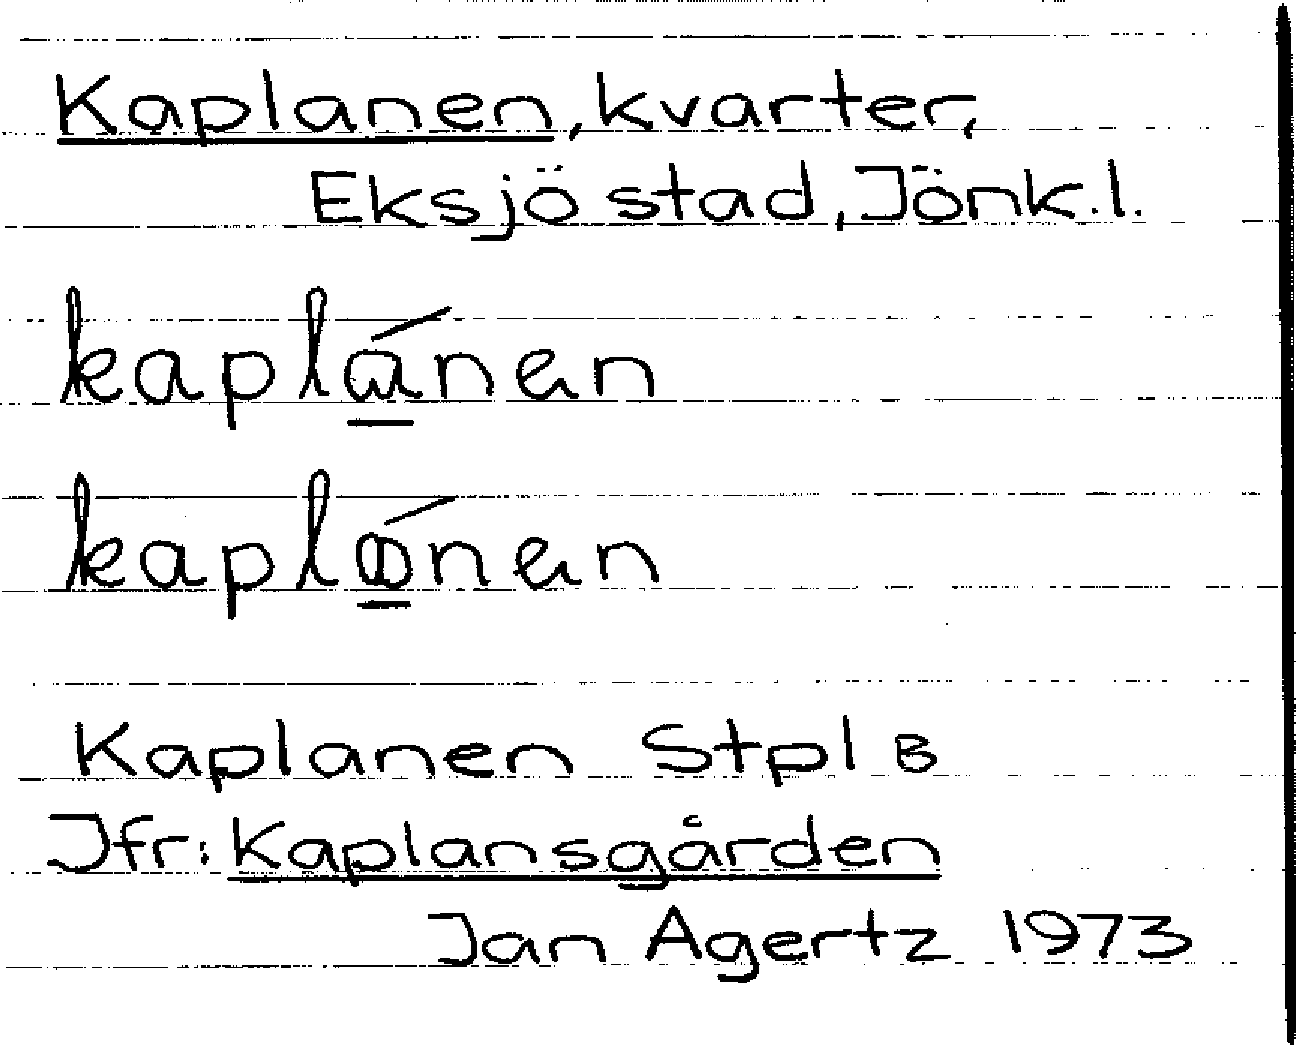 Kaplanen, kvarter,
Eksjö stad, Jönk.l.
kaplá̲nen
kaplώ̲nen
Kaplanen Stpl B
Jfr: Kaplansgården
Jan Agertz 1973